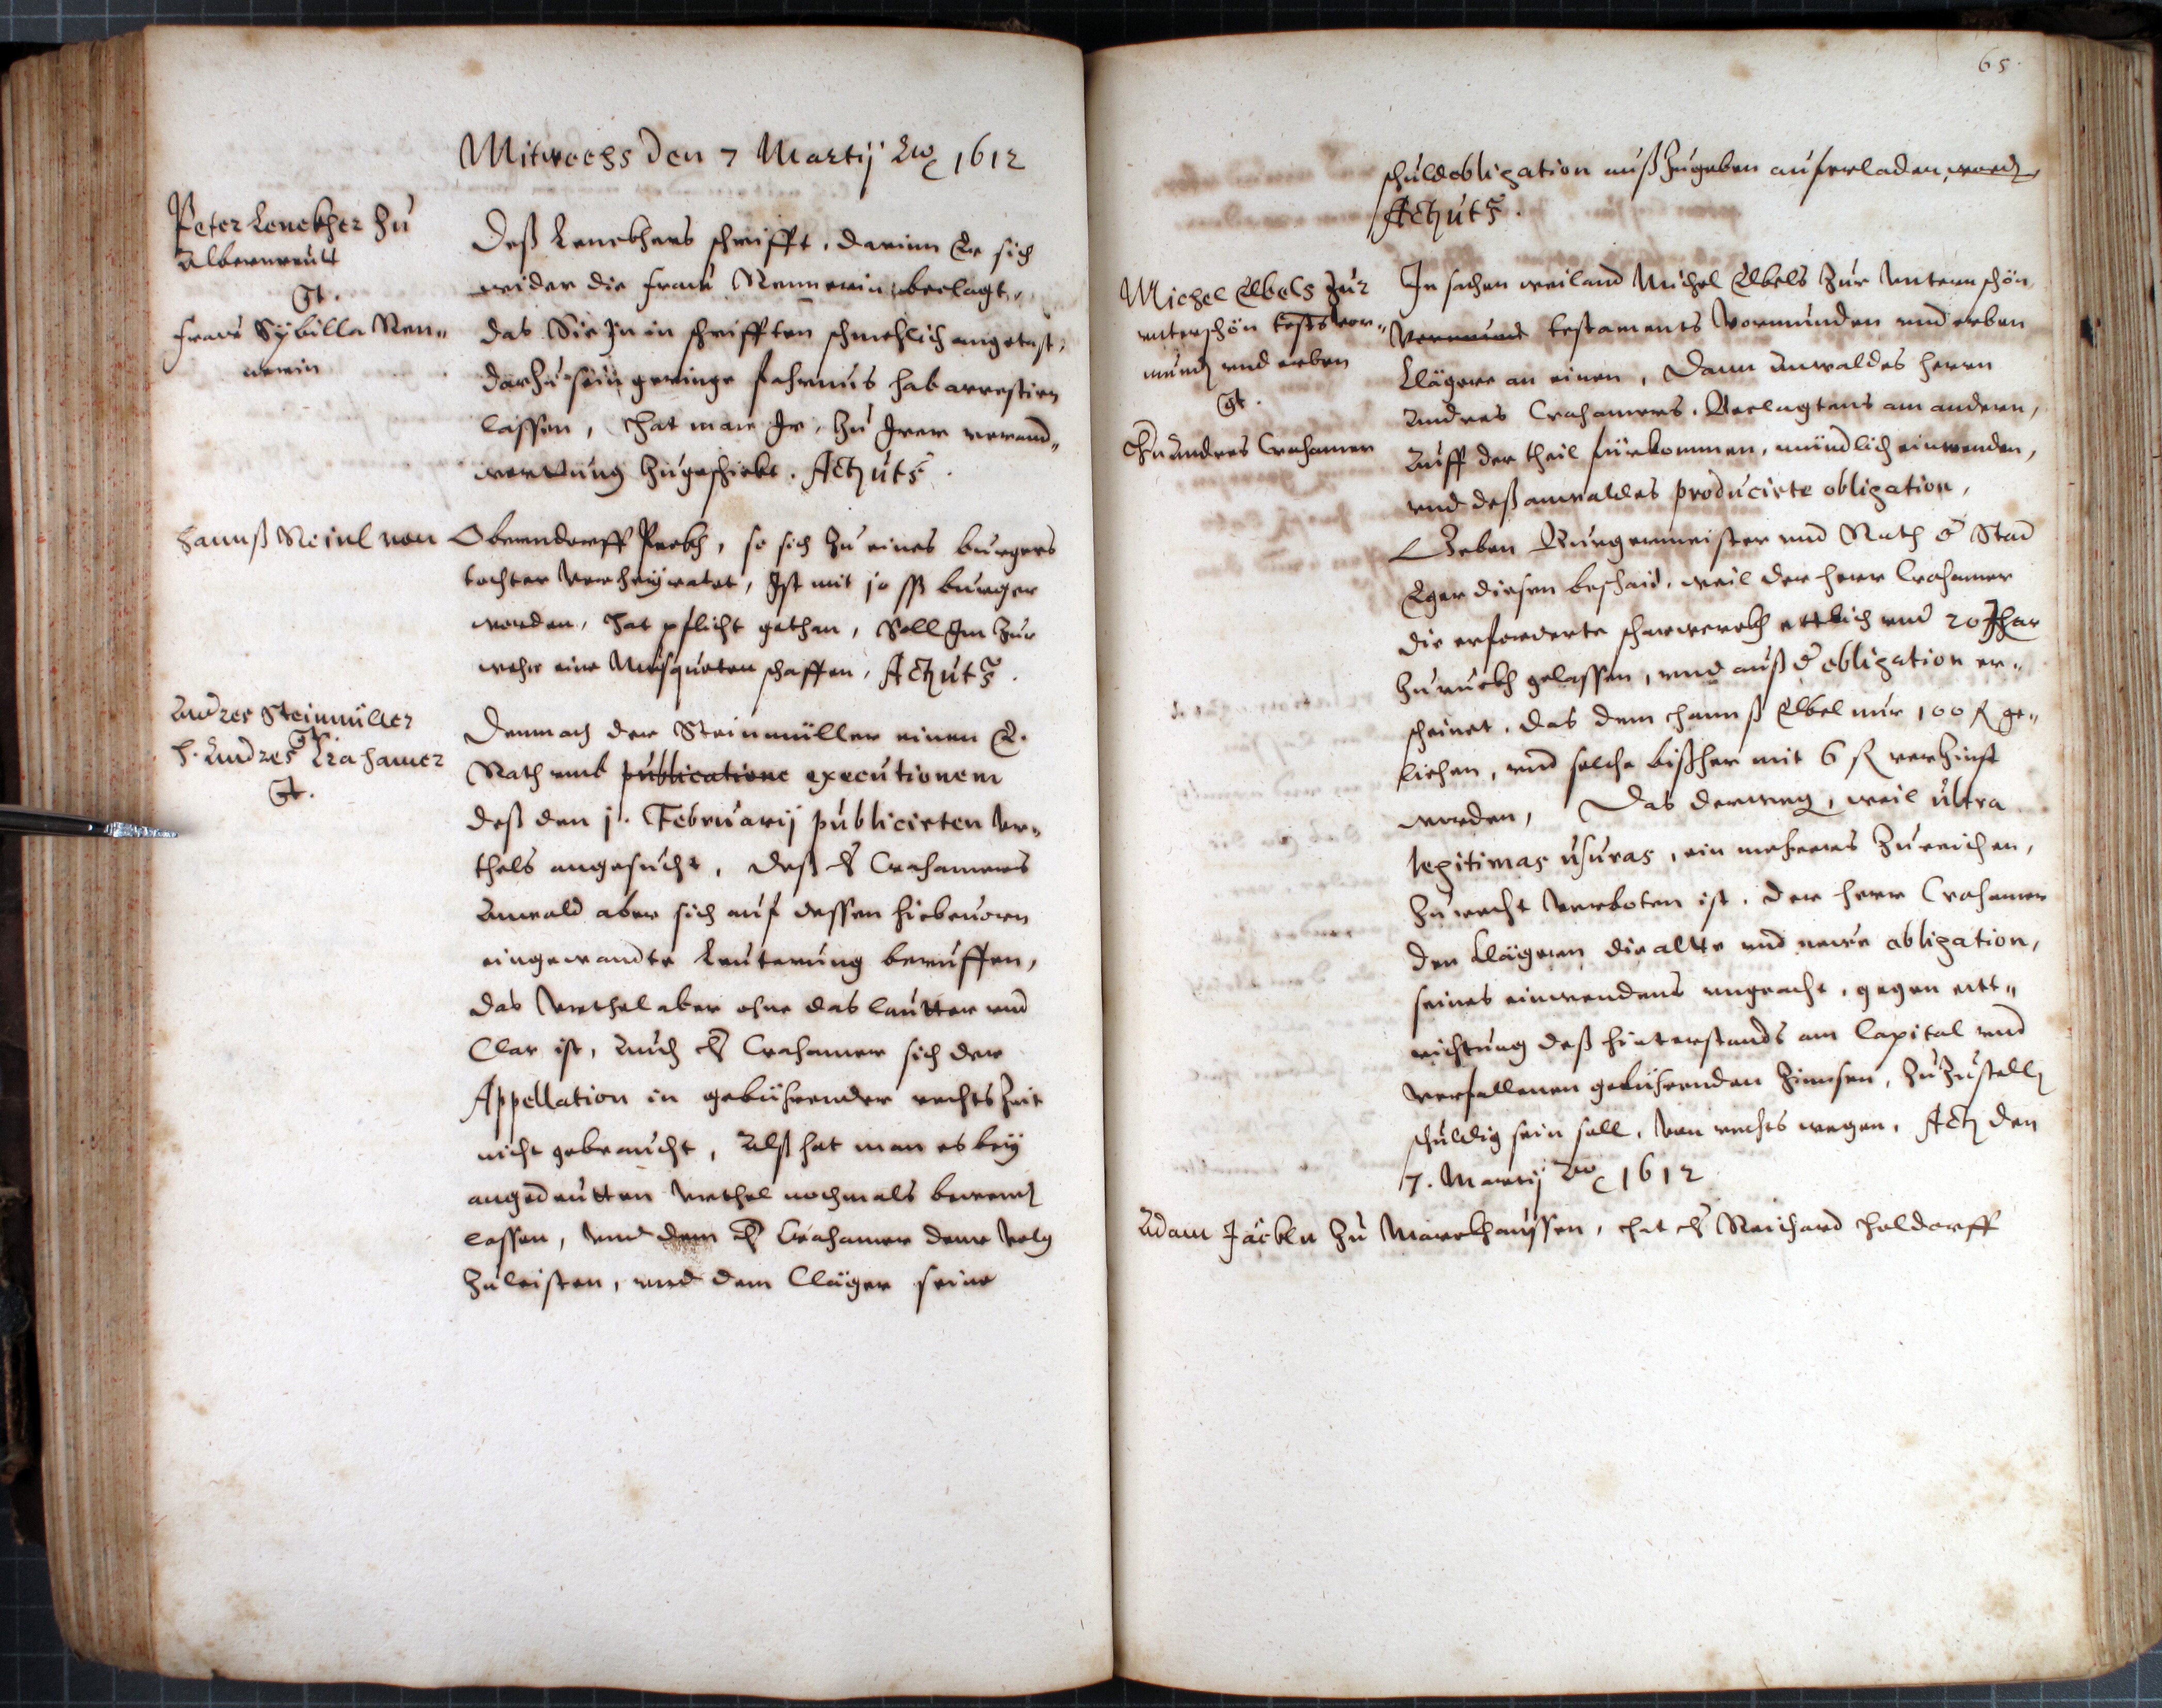 Mitwochs den 7 Martij Ao 1612
Peter Lenckher zu
Albernreutt
Gt.
Fraw Sybilla Ren„
nerin
Deß Lenckhers schrifft, darinn Er sich
wider die fraw Rennerin beclagt,
das Sie Jn in schrifften schmehlich angetast,
darzu sein geringe fahrnus hab arrestirn
lassen, hat man Jr, zu Jrer verand„
wortung zugeschickt. Act ut s.
Hannß Reinl von Oberndorff Peckh, so sich zu eines burgers
tochter verheyratet, Ist mit 10 ß burger
worden, hat pflicht gethan, Soll Jm zur
wehr eine Musqueten schaffen, Act ut s.
Andres Steinmüller
Gt
H. Andres Crahamer
Gt.
Demnach der Steinmüller einen E.
Rath umb publicatione executionem
deß den j. Februarij publicirten Vr„
thels angesucht, deß H Crahamers
Anwald aber sich auf dessen hiebevorn
eingewandte Leuterung beruffen,
das Vrthel aber ohne das lautter vnd
Clar ist, Auch H Crahamer sich der
Appellation in gebührender rechts Zeit
nicht gebraucht, Alß hat man es bey
angedeutten vrthel nochmals bewend
lassen, vnd dem H Crahamer deme volg
zuleisten, vnd dem Cläger seine
65.
schuldobligation außzugeben auferladen, word
Act ut s.
Michel Elbels zur
unterschön tests vor„
mund vnd erben
Gt.
H Andres Crahamer
In sachen weiland Michel Elbels zur Vntern schön
Vormund testaments Vormunden vnd erben
Klägere an einen, Dann Anwaldes herrn
Andres Crahamers, Beclagtens am andern,
Auff der theil fürkommen, mündlich einwenden,
vnd deß anwaldes producirte obligation,
Geben Burgermeister vnd Rath d Stad
Eger diesen beschaid, weil der herr Crahamer
die erforderte scharwerckh ettlich vnd 20 Jhar
zuruckh gelassen, vnd auß d obligation er„
scheinet, das dem Hannß Elbel nur 100 fl ge„
liehen, vnd solche bißher mit 6 fl verzinst
worden, Das derweg, weil ultra
legitimas usuras, ein mehrers zureichen,
zu recht verboten ist, der herr Crahamer
den Klägern die altte vnd newe obligation,
seines einwendens ungeacht, gegen entt„
richtung deß hinterstands am Capital vnd
verfallenen gebührenden Zinnsen, zuzustell
schuldig sein soll, von rechts wegen. Act den
7. Martij Ao 1612
Adam Jäckln zu Markhaußen, hat H Reichard Holdorff